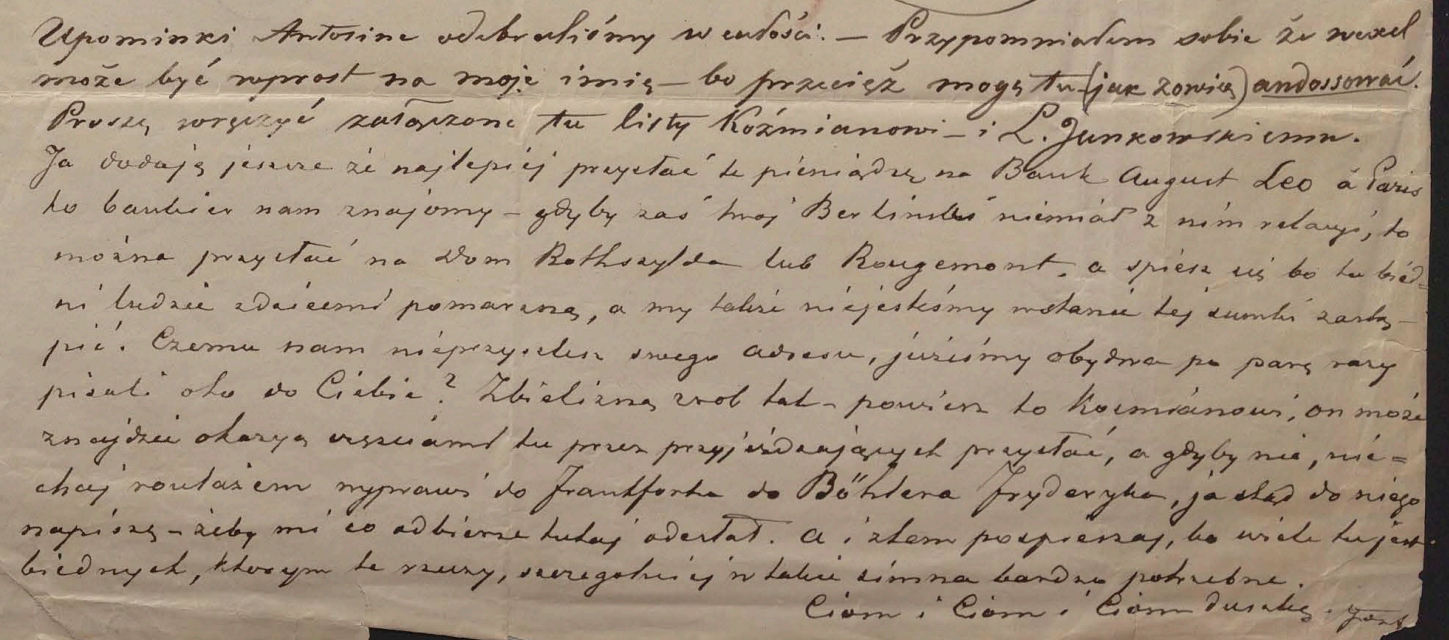 Upominki Antosine odebraliśmy w całości. — Przypomniałem sobie że wexel
może być wprost na moje imię — bo przecięż mogę tu (jak zowią) andossować.
Proszę wręczyć załączone tu listy Koźmianowi — i L. Jankowskiemu.
Ja dodaję jeszcze że najlepiej przysłać te pieniądze na Bank August Leo à Paris
to bankier nam znajomy — gdyby zaś twój Berliński niemiał z nim relacyi, to
można przysłać na dom Rothszylda lub Rougemont. a spiesz się bo tu bied=
ni ludzie zdziećmi pomarzną, a my także niejesteśmy wstanie tej sumki zastą—
pić. Czemu nam nieprzyszlesz swego adresu, jużeśmy obydwa po parę razy
pisali oto do Ciebie? Zbielizną zrob tak — powierz to Kozmianowi, on może
znajdzie okazyą częściami tu przez przyjeżdzających przysłać, a gdyby nie, nie=
chaj roulażem wyprawi do Frankforta do Böhlera Fryderyka, ja stąd do niego
napiszę — żeby mi co odbierze tutaj odesłał. a i ztem pospieszaj, bo wiele tu jest
biednych, ktorym te rzeczy, szczegolniej w takie zimna bardzo potrzebne.
Ciom i Ciom i Ciom duszkę.